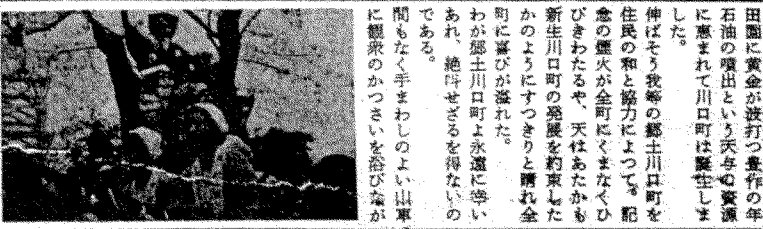 田園に黄金が波打つ豊作の年
石油の噴出という天与の資源
に恵まれて川口町は誕生しま
した。
伸ばそう我等の郷土川口町を
住民の和と協力によつて。記
念の煙火が全町にくまなくひ
びきわたるや、天はあたかも
新生川口町の発展を約束した
かのようにすつきりと晴れ全
町に喜びが溢れた。
わが郷土川口町よ永遠に幸い
あれ、絶叫せざるを得ないの
である。
間もなく手まわしのよい山車
に観衆のかつさいを浴びなが